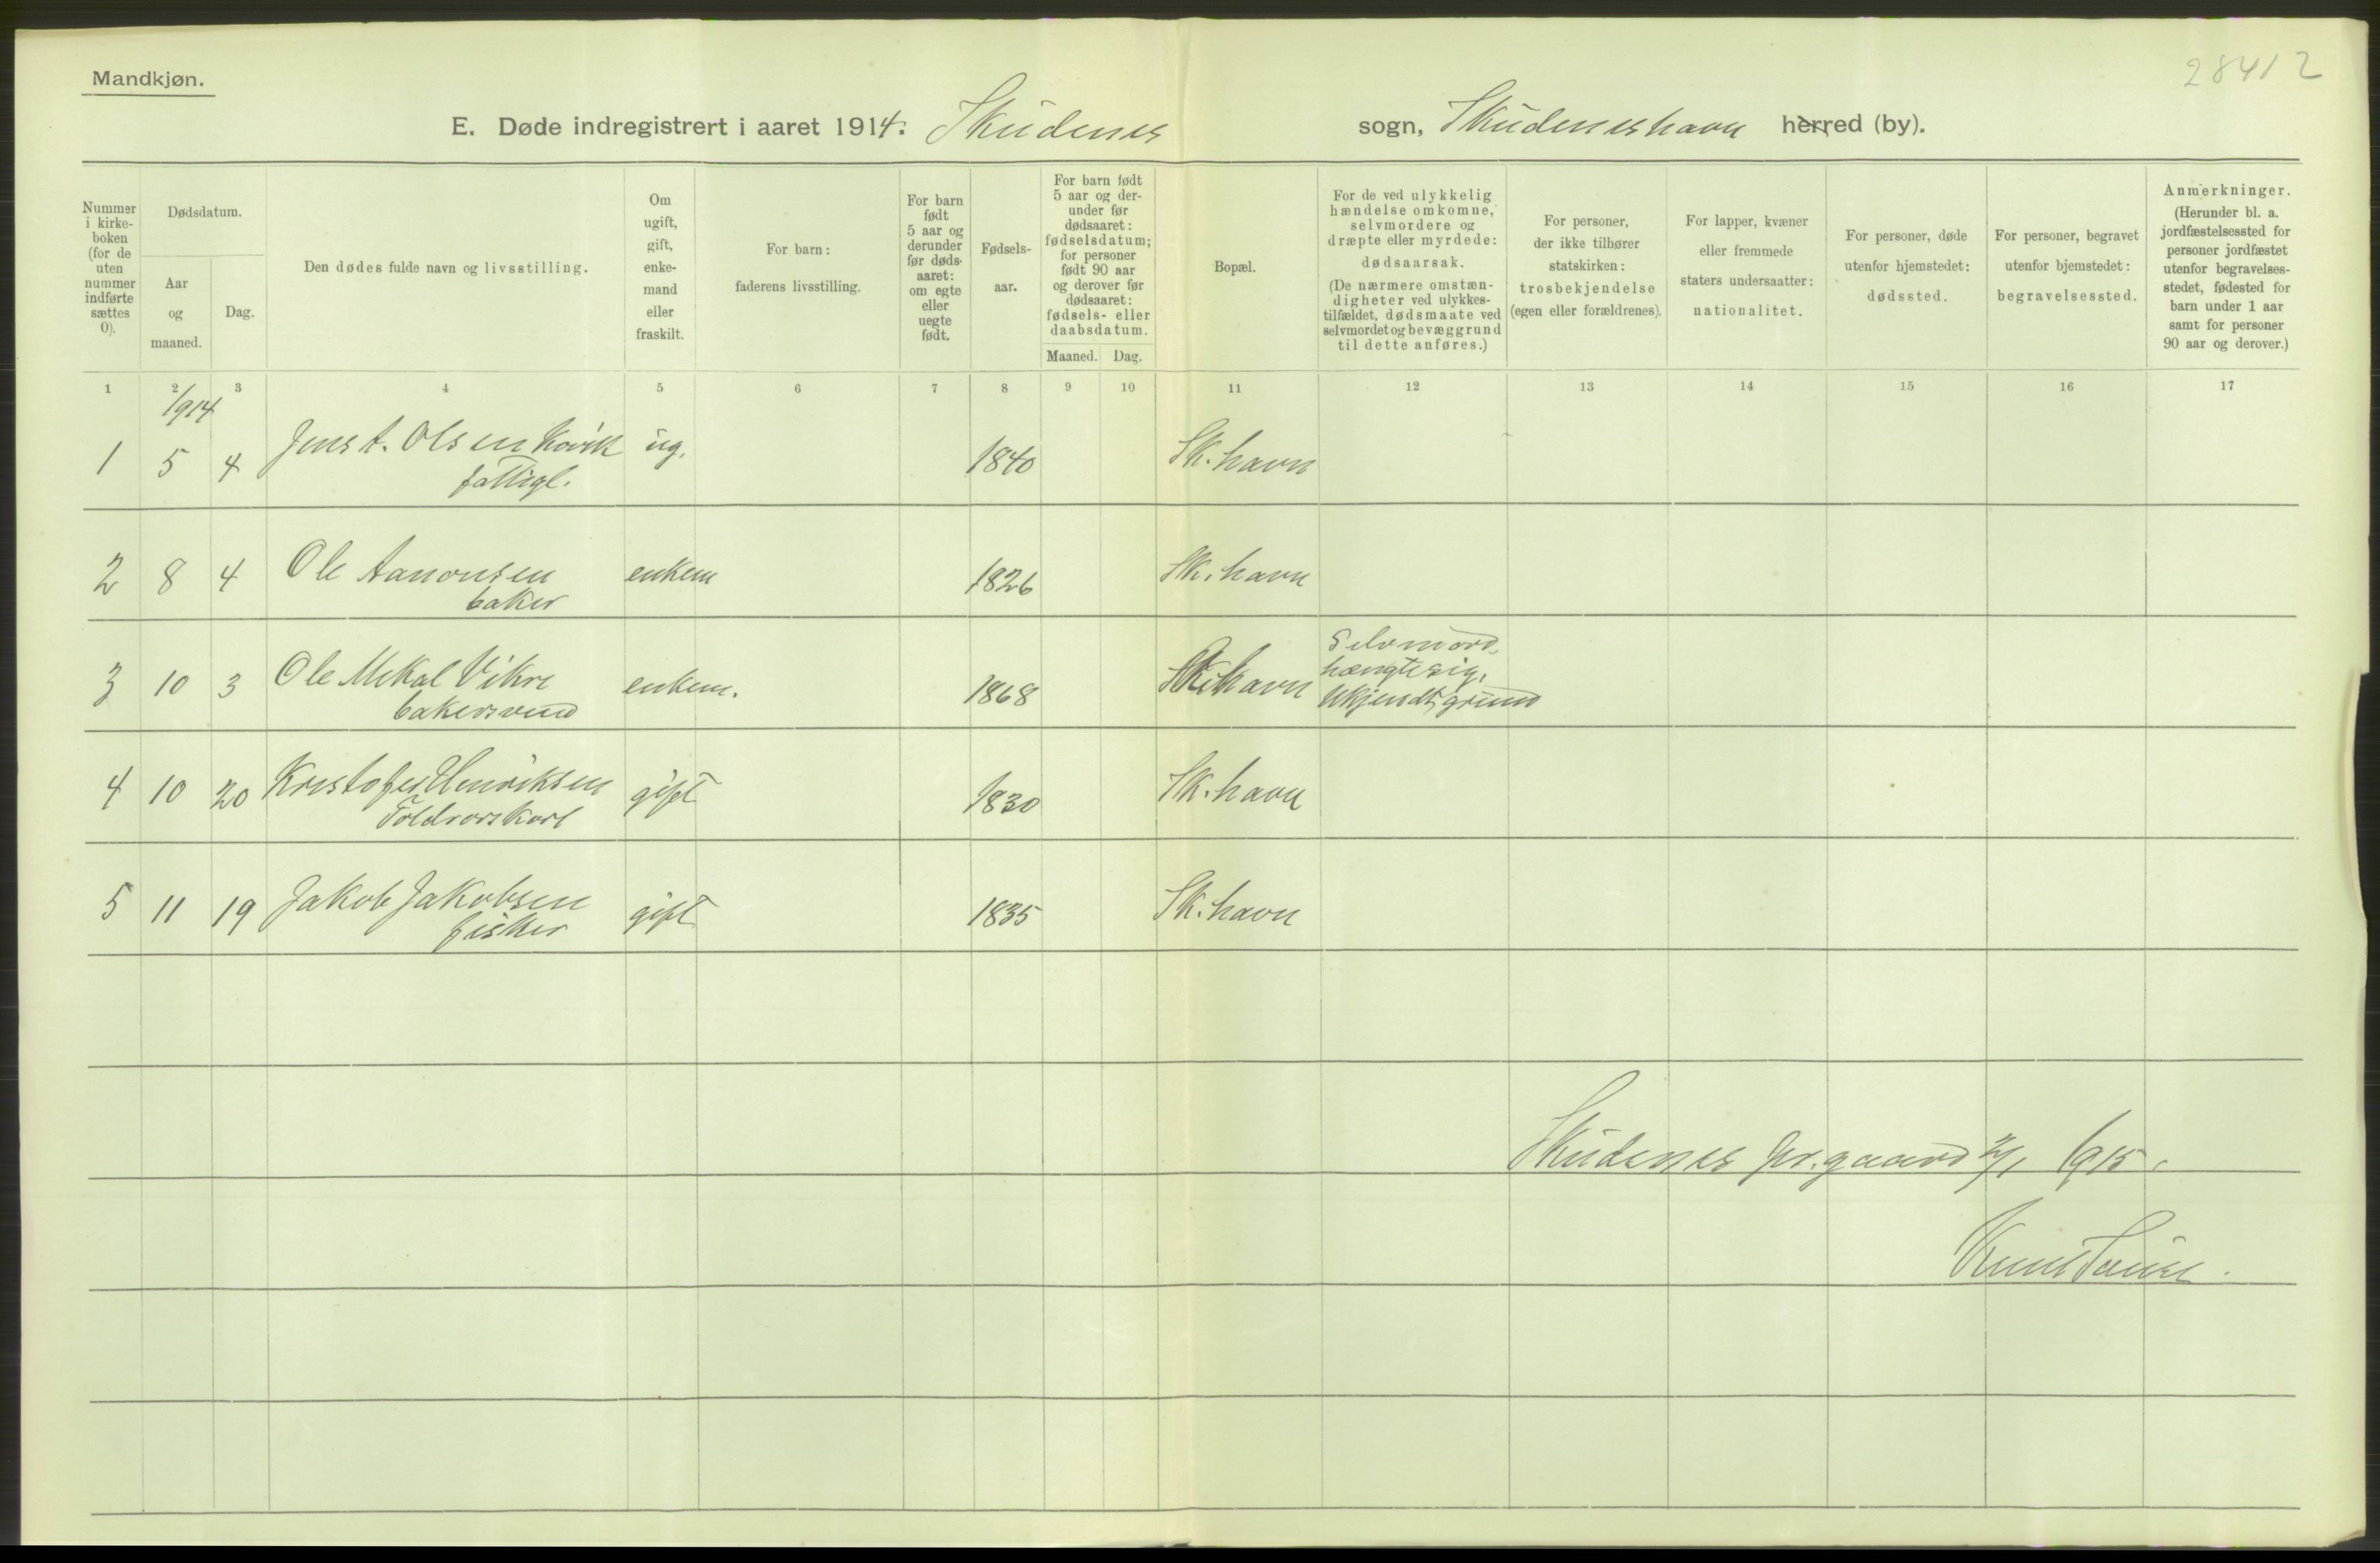 28412
Mandkjøn.
E. Døde indregistrert i aaret 1914. Skudenes sogn, Skudeneshavn herred (by).
Nummer i kirkeboken (for de uten nummer indførte sættes 0).
Dødsdatum.
Aar og maaned.
Dag.
Den dødes fulde navn og livsstilling.
Om ugift, gift, enkemand eller fraskilt.
For barn: faderens livsstilling.
For barn født 5 aar og derunder før dødsaaret: om egte eller uegte født.
Fødselsaar.
For barn født 5 aar og derunder før dødsaaret: fødselsdatum; for personer født 90 aar og derover før dødsaaret: fødsels- eller daabsdatum.
Maaned. Dag.
Bopæl.
For de ved ulykkelig hændelse omkomne, selvmordere og dræpte eller myrdede: dødsaarsak.
(De nærmere omstændigheter ved ulykkestilfældet, dødsmaate ved selvmordet og bevæggrund til dette anføres.)
For personer, der ikke tilhører statskirken: trosbekjendelse (egen eller forældrenes).
For lapper, kvæner eller fremmede staters undersaatter: nationalitet.
For personer, døde utenfor hjemstedet: dødssted.
For personer, begravet utenfor hjemstedet: begravelsessted.
Anmerkninger.
(Herunder bl. a. jordfæstelsessted for personer jordfæstet utenfor begravelsesstedet, fødested for barn under 1 aar samt for personer 90 aar og derover.)
1 2 3 4 5 6 7 8 9 10 11 12 13 14 15 16 17
1914
1 5 4 Jens A. Olsen ug. 1840 Sk.havn
fattigl.
2 8 4 Ole Aanonsen enkem 1826 Sk.havn
baker
3 10 3 Ole Mikal Vikre enkem. 1868 Sk.havn Selvmord,
hængte sig,
Ukjendt grund
bakersvend
4 10 20 Kristofer Henriksen gift 1830 Sk.havn
Toldrorskarl
5 11 19 Jakob Jakobsen gift 1835 Sk.havn
fisker
Skudenes pr.gaard 2/1 1915.